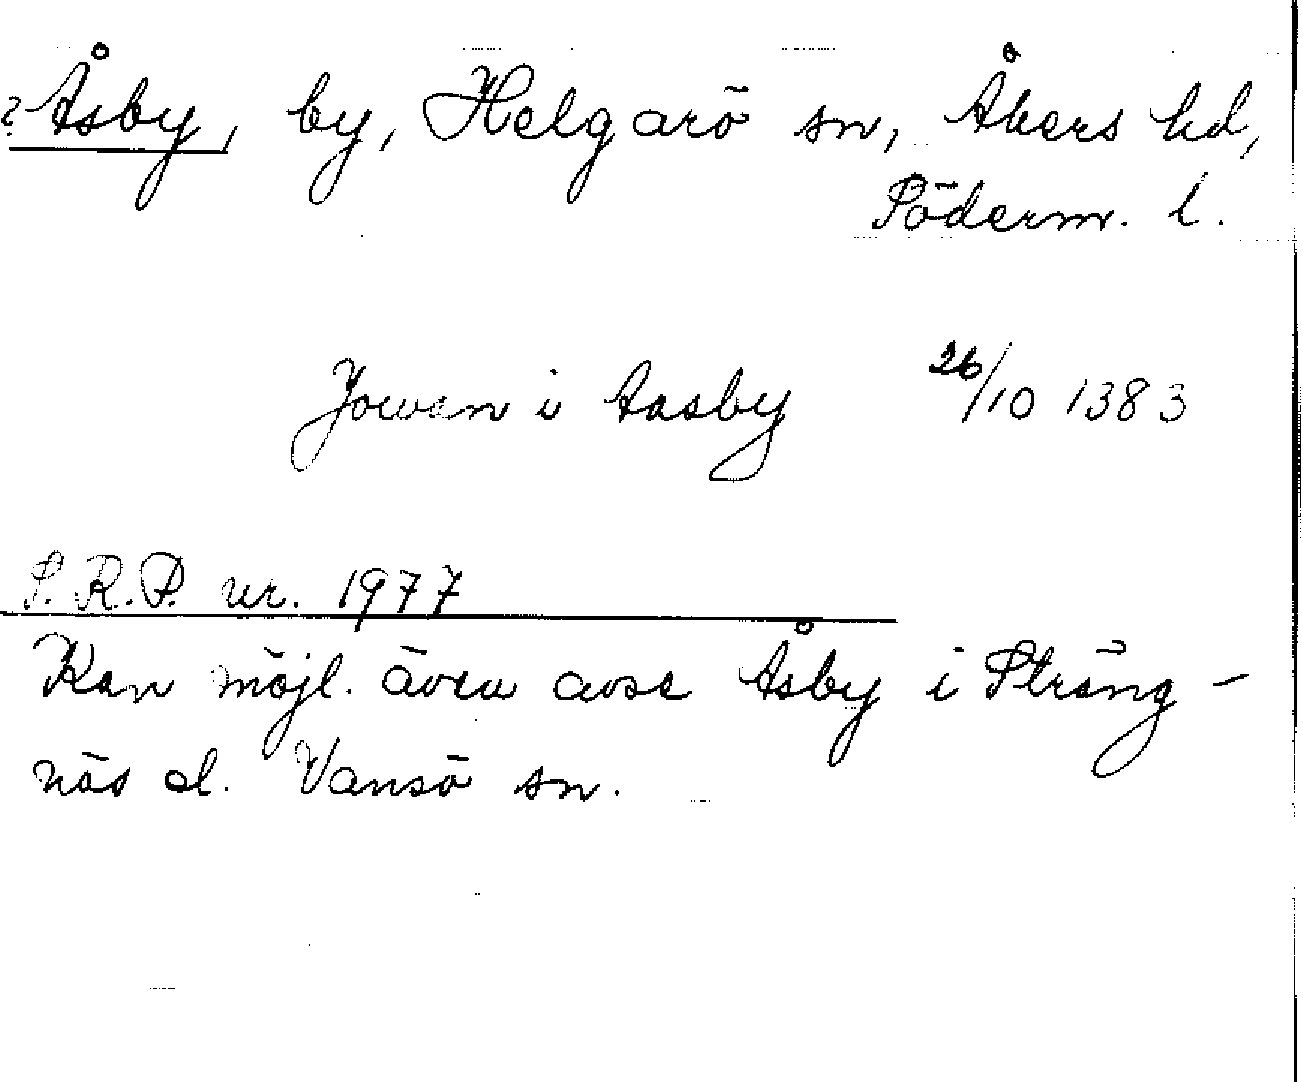 ? Åsby, by, Helgarö sn, Åkers hd,
Söderm. l.
Jowan i Aasby 26/10 1383
S.R.P. nr. 1977
Kan möjl. även avse Åsby i Sträng-
näs el. Vansö sn.